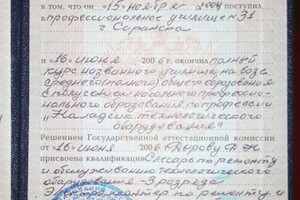 в том, что он "15" ноября 2004 поступил
в профессиональное училище 31
г Саранска
и "16" июня 2006 г. окончил полный
курс названного училища на базе
среднего (полного) общего образования
и получил начального професси-
онального образования по профессии
"Наладчик технологического
оборудования"
Решением Государственной аттестационной комиссии
от "16" июня 2006
присвоена квалификация Слесарь по ремонту
и обслуживанию технологического
оборудования - 3 разряда
Электромонтер по ремонту и